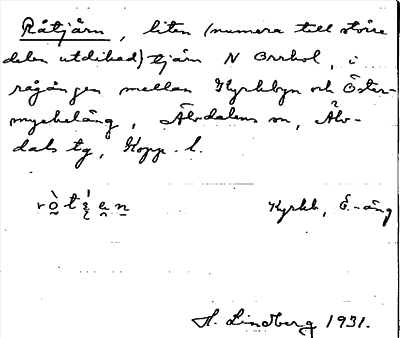 Råtjärn, liten (numera till större
delen utdikad) tjärn N Orrhol, i
rågången mellan Kyrkbyn och Öster-
myckeläng, Älvdalens sn, Älv-
dals tg, Kopp. l.
Kyrkb, Ö.-äng
H. Lindberg 1931.